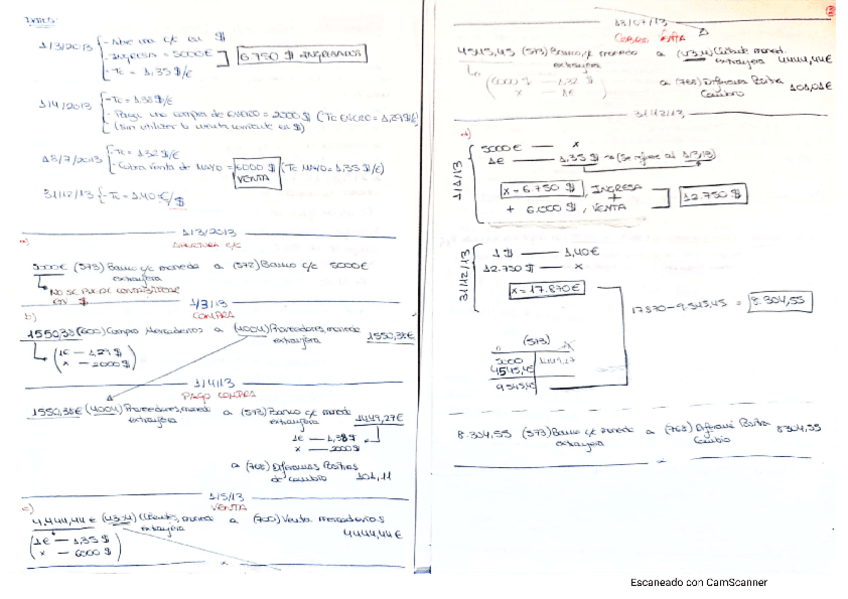 DATOS
1/3/2013
- Abre una c/c en $
- Ingresa = 5000€
- Tc = 1,35 $/€
6.750 $ INGRESADOS
1/4/2013
- Tc = 1,38 $/€
- Paga una compra de ENERO = 2000 $ (Tc ENERO = 1,29 $/€)
(Sin utilizar la cuenta corriente en $)
18/7/2013
- Tc = 1,32 $/€
- Cobra venta de MAYO = 6000 $ (Tc MAYO = 1,35 $/€)
VENTA
31/12/13 - Tc = 1,40 €/$
1/3/2013
a)
APERTURA C/C
5000€ (573) Banco c/c moneda a (572) Banco c/c 5000€
extranjera
NO SE PUEDE CONTABILIZAR
EN $
1/3/13
b)
COMPRA
1550,38 (600) Compra Mercaderías a (4004) Proveedores, moneda 1550,38€
extranjera
1€ — 1,29 $
x — 2000 $
1/4/13
PAGO COMPRA
1550,38€ (4004) Proveedores, moneda a (573) Banco c/c moneda 1449,27€
extranjera extranjera
1€ — 1,38 $
x — 2000 $
a (768) Diferencias Positivas
de cambio 101,11
1/5/13
c)
VENTA
4.444,44 € (4304) Clientes, moneda a (700) Venta mercaderías
extranjera 4444,44€
1€ — 1,35 $
x — 6000 $
18/07/13
COBRO VENTA
4545,45 (573) Banco, c/c moneda a (4304) Clientes moned.
extranjera extranjera 4444,44€
(6000 $ — 1,32 $
x — 1€)
a (768) Diferencia Positiva
Cambio 101,01€
31/12/13
1/1/13
5000€ — x
1€ — 1,35 $ → (Se ingresa al 1/3/13)
x = 6.750 $, INGRESA
+
+ 6.000 $, VENTA
12.750 $
31/12/13
1 $ — 1,40€
12.750 $ — x
x = 17.870€
17.870 - 9.545,45 = 8.304,55
(573)
5000
1449,27
4545,45
9.545,45
8.304,55 (573) Banco c/c moneda a (768) Diferencia Positiva 8304,55
extranjera Cambio
Escaneado con CamScanner